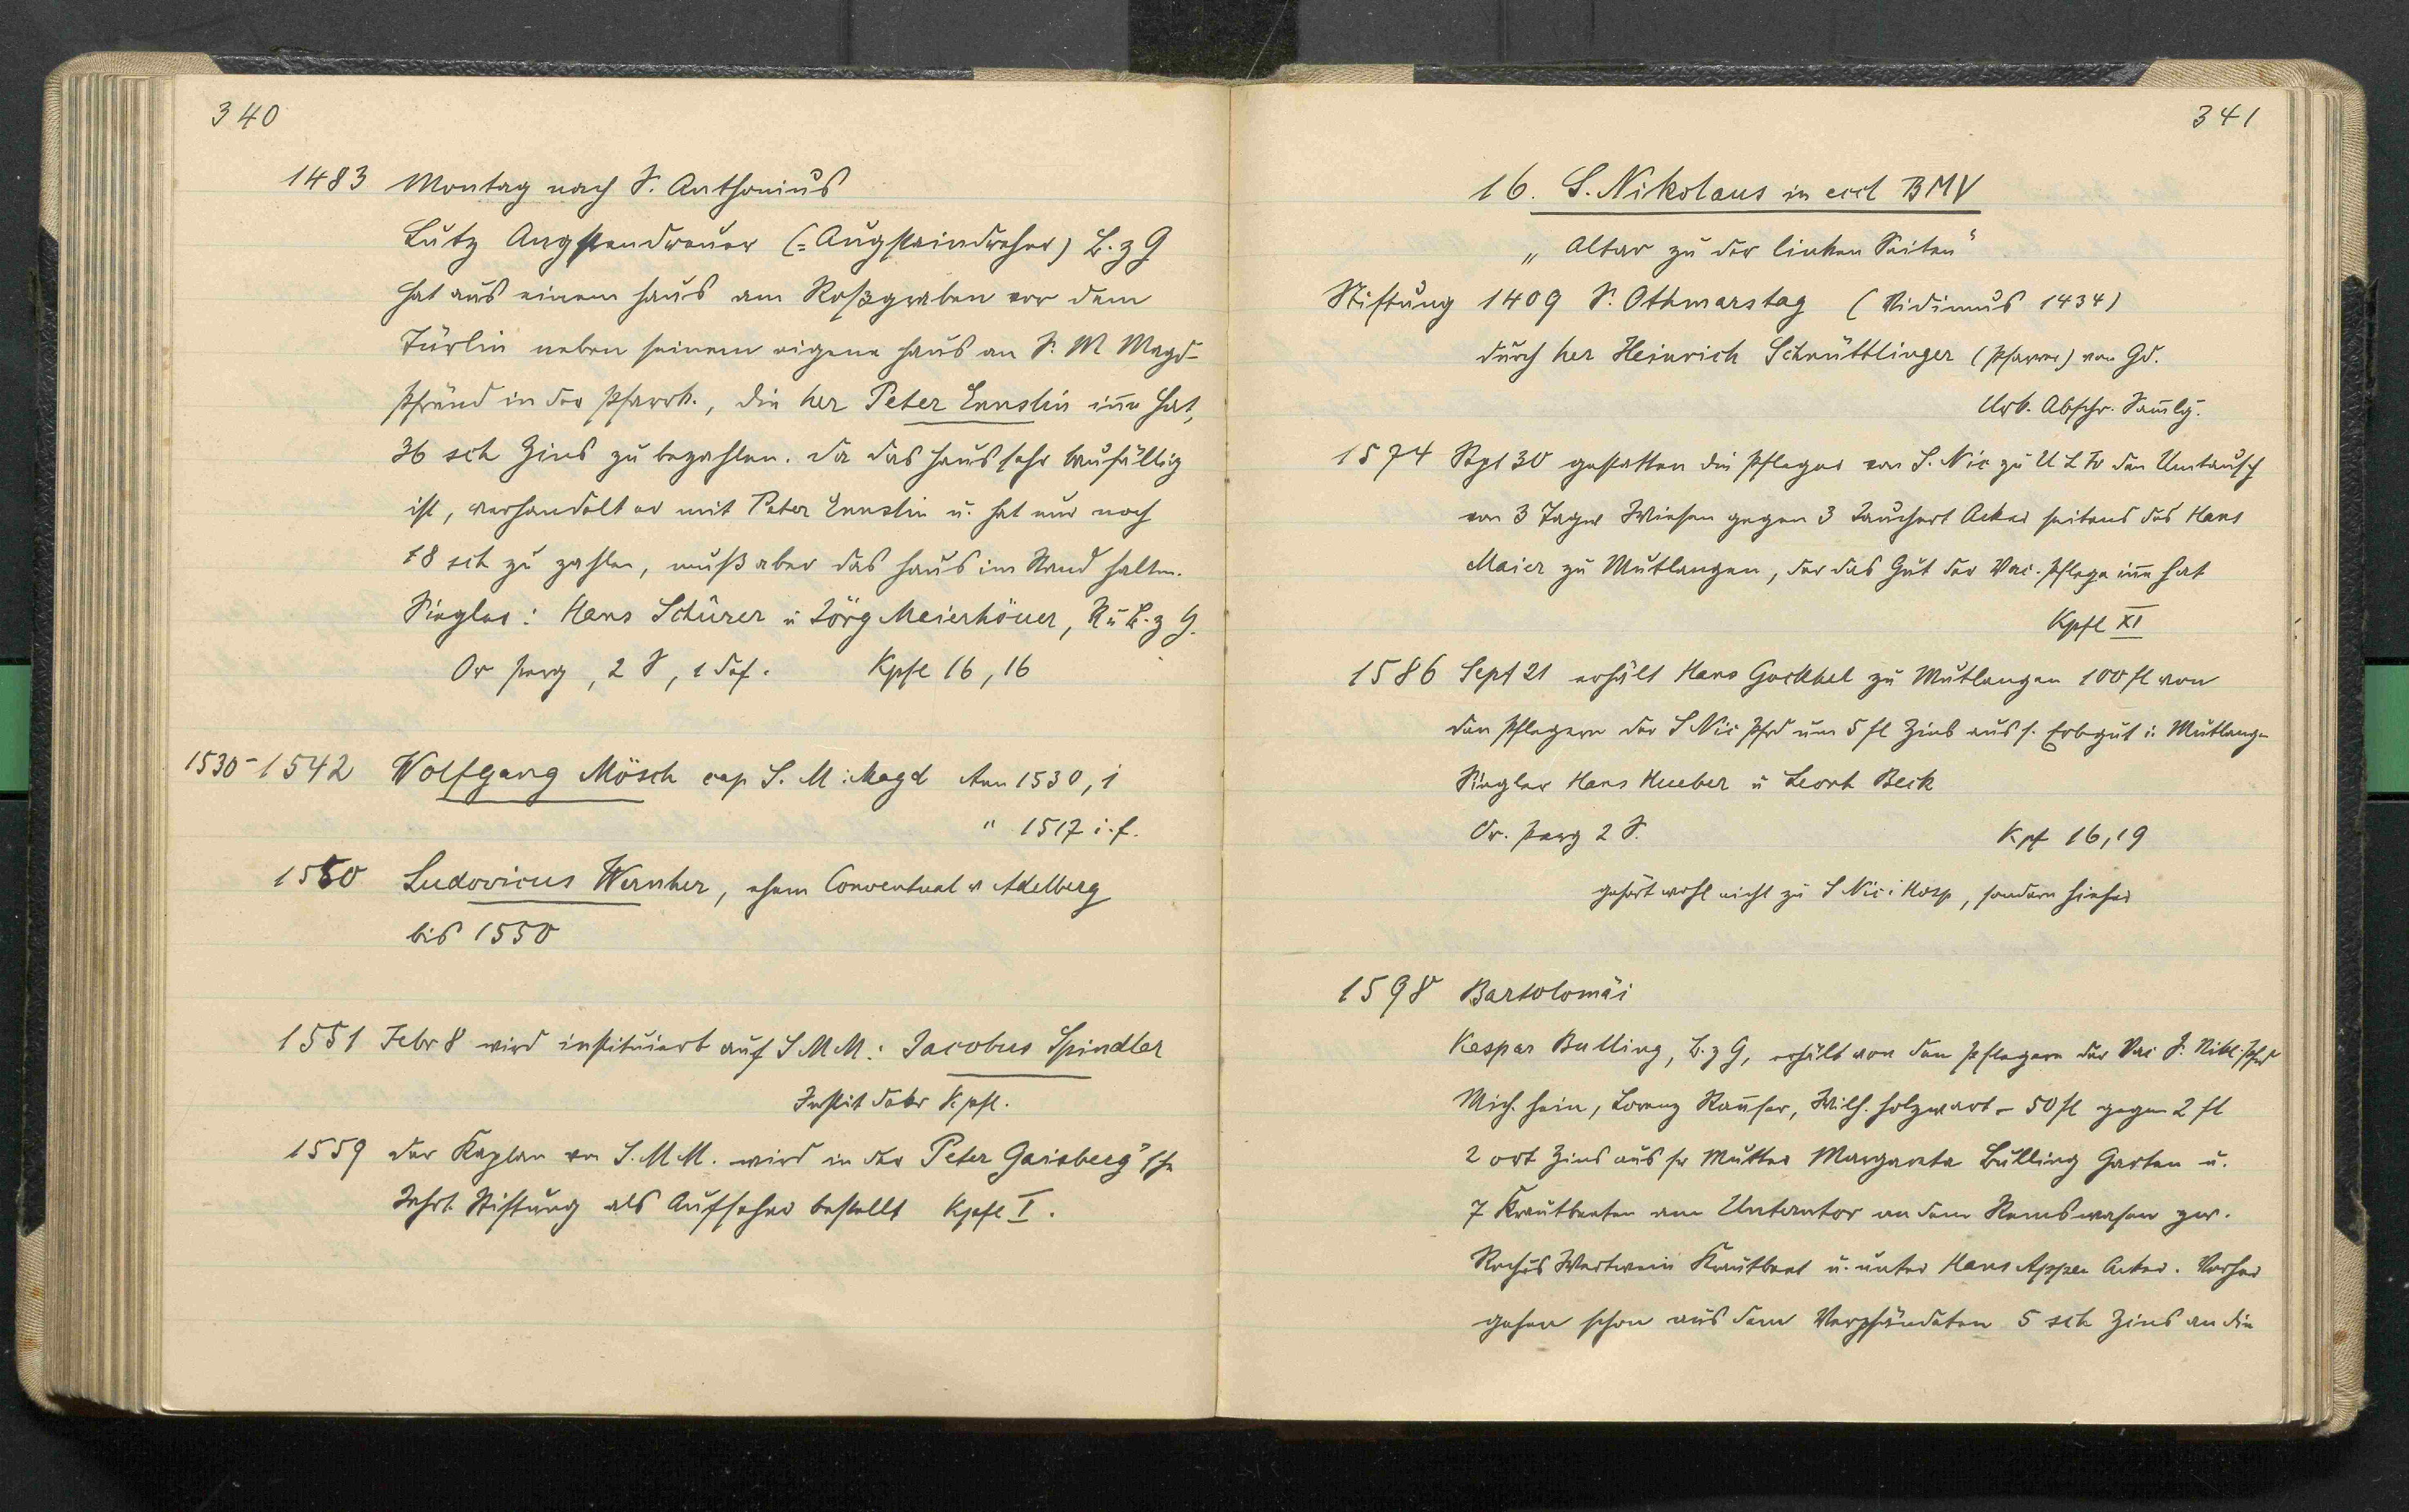 340
1483 Montag nach S. Anthonius
Lutz Angstendreuer (= Augstaindreher) B. z G
hat aus einem Haus am Roßgraben vor dem
Türlin neben seinem eigene Haus an S. M Magd-
Pfründ in der Pfarrk., die her Peter Ennslin inne hat,
36 sch Zins zu bezahlen. Da das Haus sehr baufällig
ist, verhandelt er mit Peter Ennslin u. hat nur noch
18 sch zu zahlen, muß aber das Haus im Stand halten.
Siegler: Hans Schürer u Jörg Meierhöuer, R u B. z G.
Or perg, 2 S, 1 def. Kpfl 16, 16
1530-1542 Wolfgang Mösch cap S. M. Magd Ann 1530, 1
" 1517 i. f.
1550 Ludovicus Wernher, ehem Conventual v Adelberg
bis 1550
1551 Febr 8 wird instituiert auf S M M: Jacobus Spindler
Instit K. pfl.
1559 der Kaplan von S. M M. wird in der Peter Gaisberg'sche
Jahrt. Stiftung als Aufseher bestellt Kpfl I.
341
16. S. Nikolaus in eccl BMV
„Altar zu der linken Seiten"
Stiftung 1409 S. Othmarstag (Vidimus 1434)
durch her Heinrich Schnüttlinger (Pfarrer) von Gd.
Urk. Abschr. Samlg.
1574 Spt 30 gestatten die Pfleger von S. Nic zu U L Fr den Umtausch
von 3 Tagw Wiesen gegen 3 Jauchert Acker seitens des Hans
Maier zu Mutlangen, der das Gut der Vic. Pflege inne hat
Kpfl XI
1586 Sept 21 erhält Hans Gockhel zu Mutlangen 100 fl von
den Pflegern der S Nic Pfrd um 5 fl Zins aus s. Erbgut i. Mutlang-
Siegler Hans Hueber u Leonh Beck
Or. perg 2 S. Kpf 16, 19
gehört wohl nicht zu S Nic i Hosp, sondern hieher
1598 Bartolomäi
Kaspar Bulling, B. z G, erhält von den Pflegern der Vic S. Nikl. Pfrd
Mich. Hein, Lorenz Wilh. Holzwart - 50 fl gegen 2 fl
2 ort Zins aus sr Mutter Margareta Bulling Garten u.
7 Krautbeeten am Untertor an dem Remswasen zw.
Rochus Wertwein Krautbeet u. unter Hans Apper Acker. Vorher
gehen schon aus dem Verpfändeten 5 sch Zins an die